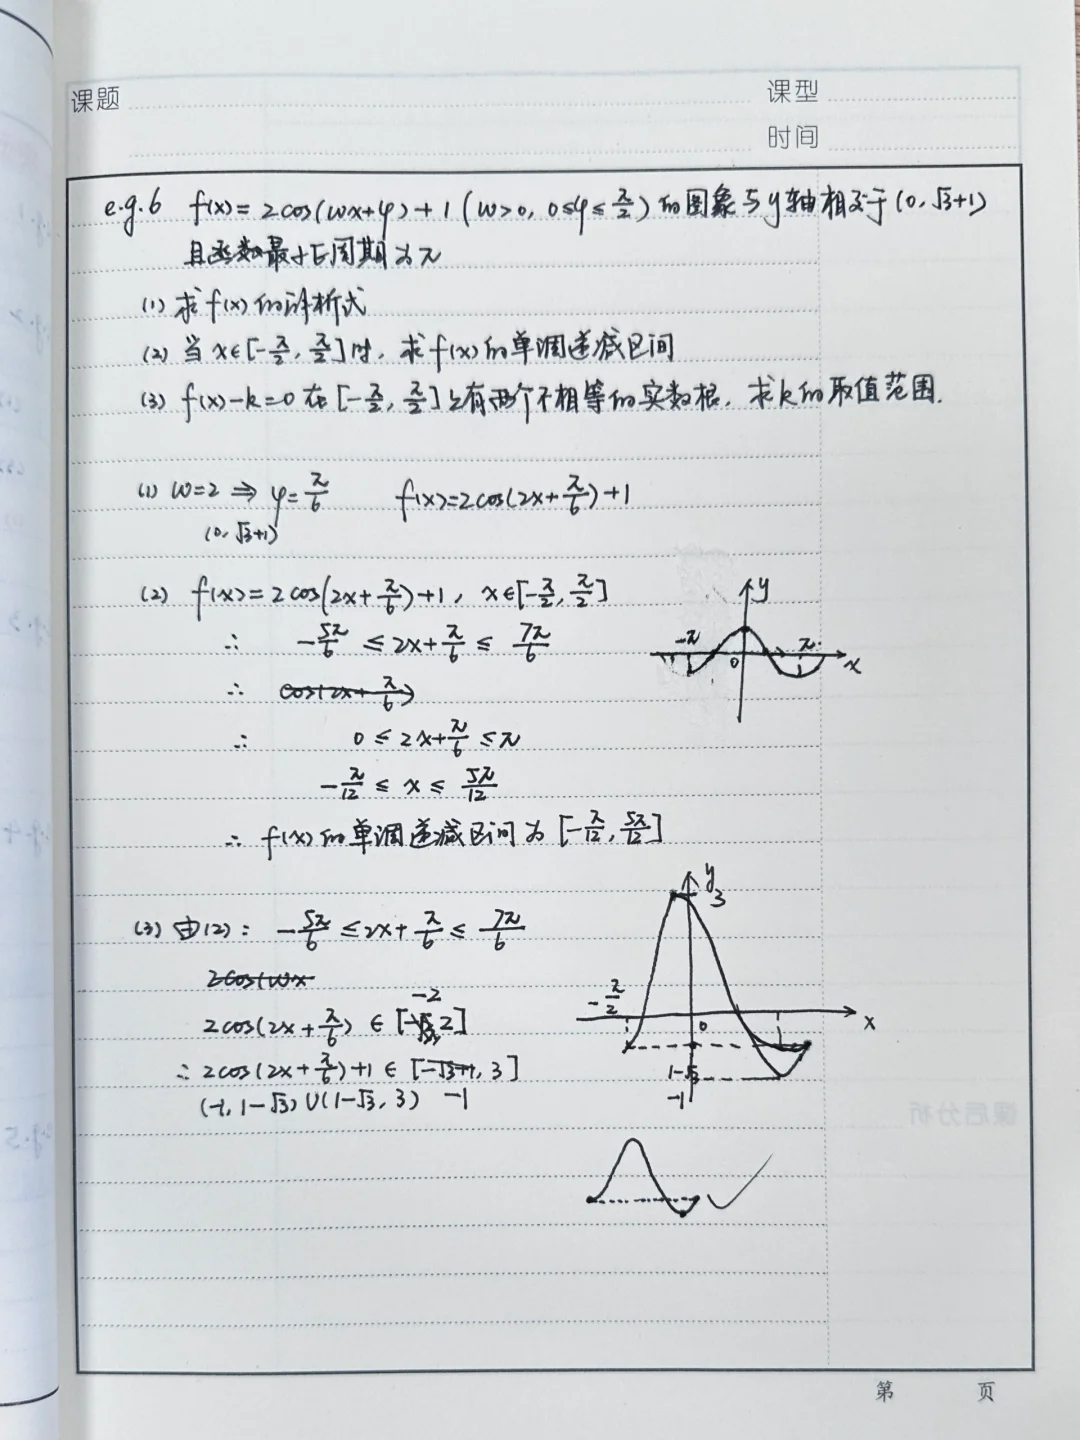 课题
课型
时间
e.g.6 f(x)=2cos(ωx+φ)+1(ω>0, 0≤φ≤π/2)的图象与y轴相交于(0,√3+1)
且函数最小正周期为π
(1) 求f(x)的解析式
(2) 当x∈[-π/2, π/2]时, 求f(x)的单调递减区间
(3) f(x)-k=0在[-π/2, π/2]上有两个不相等的实数根, 求k的取值范围.
(1) ω=2 ⇒ φ=π/6 f(x)=2cos(2x+π/6)+1
(0, √3+1)
(2) f(x)=2cos(2x+π/6)+1, x∈[-π/2, π/2]
∴ -5π/6 ≤ 2x+π/6 ≤ 7π/6
∴ cos(2x+π/6)
∴ 0 ≤ 2x+π/6 ≤ π
-π/12 ≤ x ≤ 5π/12
∴ f(x)的单调递减区间为[-π/12, 5π/12]
y
-π
π
0
x
(3) 由(2): -5π/6 ≤ 2x+π/6 ≤ 7π/6
2cos(ωx
-2
2cos(2x+π/6) ∈ [-√3, 2]
∴ 2cos(2x+π/6)+1 ∈ [-√3+1, 3]
(-1, 1-√3)∪(1-√3, 3) -1
y
3
-π/2
0
x
1-√3
-1
课后分析
第 页